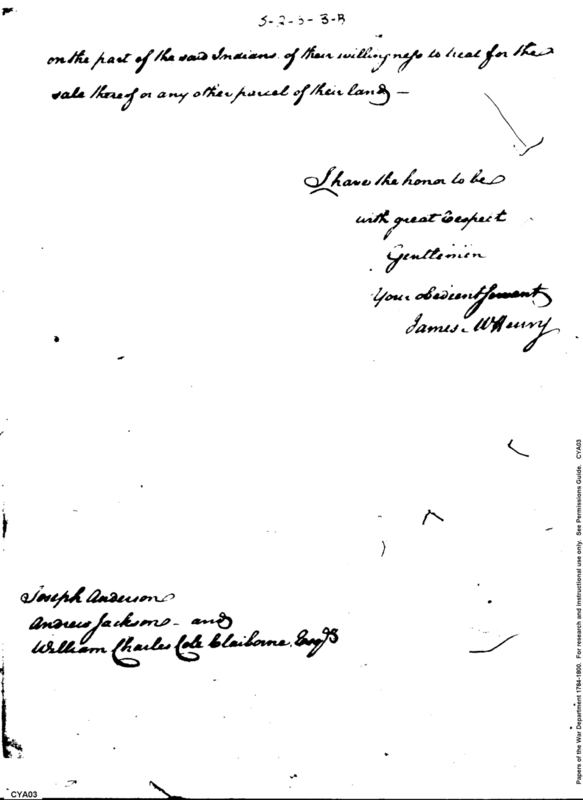 5-2-3-3-B
on the part of the said Indians of their willingness to treat for the
sale thereof or any other parcel of their land —
I have the honor to be
with great respect
Gentlemen
Your obedient servant
James McHenry
Joseph Anderson
Andrew Jackson - and
William Charles Cole Claiborne, Esqrs
CYA03
Papers of the War Department 1784-1800. For research and instructional use only. See Permissions Guide. CYA03